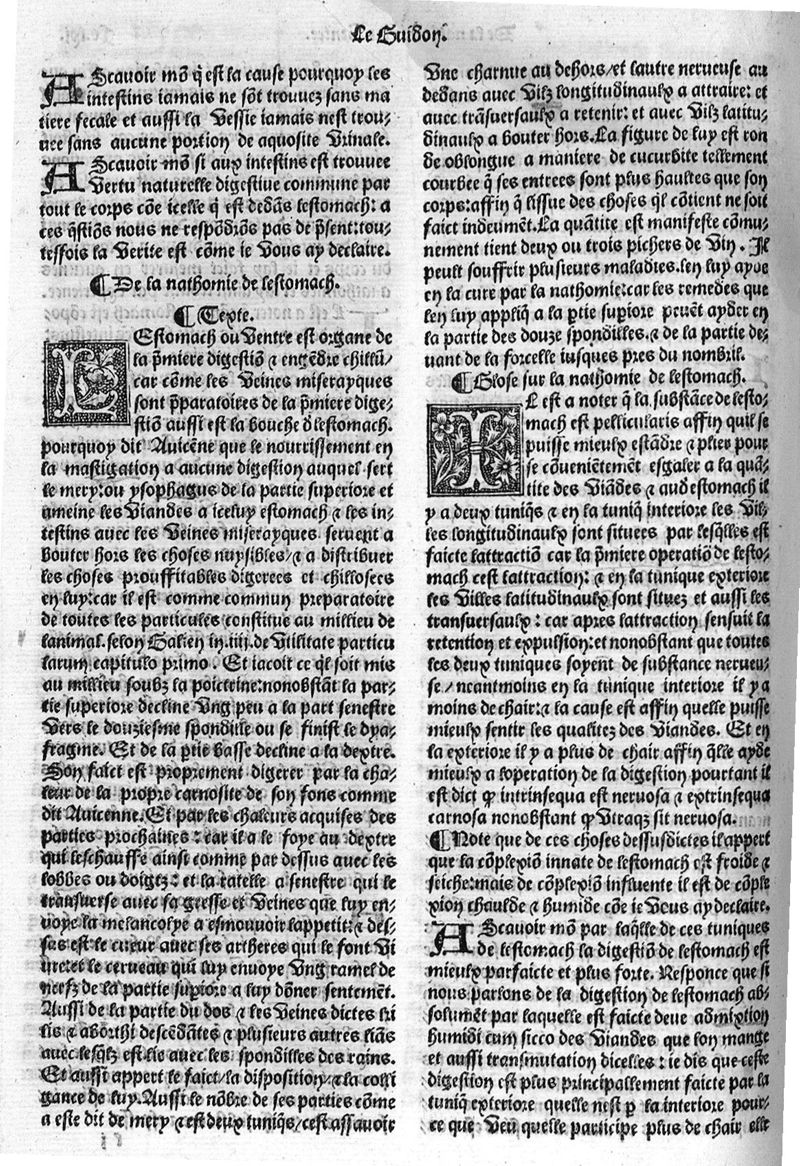 Le Guidon.
AScavoir mõ q̃ est la cause pourquoy les
intestins iamais ne sõt trouvez sans ma
tiere fecale et aussi la Vessie iamais nest trou/
nee sans aucune portion de aquosite Vrinale.
AScavoir mõ si aux intestins est trouvee
Vertu naturelle digestive commune par
tout le corps cõe icelle q̃ est dedãs lestomach: a
ces q̃stiõs nous ne respõdrõs pas de p̃sent: tou/
tesfois la Verite est cõme ie Vous ay declaire.
¶ De la nathomie de lestomach.
¶ Texte.
LEstomach ou Ventre est organe de
la p̃miere digestiõ ⁊ engẽdre chillũ/
car cõme les Veines miserayques
sont p̃paratoires de la p̃miere dige/
stiõ aussi est la bouche d̃ lestomach.
pourquoy dit Avicẽne que le nourrissement en
la mastigation a aucune digestion auquel sert
le mery: ou ysophagus de la partie superiore et
ameine les Viandes a iceluy estomach ⁊ les in/
testins avec les Veines miserayques servent a
bouter hors les choses nuysibles/⁊ a distribuer
les choses prouffitables digerees et chillosees
en luy: car il est comme commun preparatoire
de toutes les particules constitue au millieu de
lanimal. selon Galien in .iiij. de Vtilitate particu
larum capitulo primo. Et iacoit ce q̃l soit mis
au millieu soubz la poictrine: nonobstãt la par/
tie superiore decline Vng peu a la part senestre
Vers le douziesme spondille ou se finist le dya/
fragme. Et de la ptie basse decline a la dextre.
Son faict est proprement digerer par la cha/
leur de la propre carnosite de son fons comme
dit Avicenne. Et par les chaleurs acquises des
parties prochaines: car il a le foye au dextre
qui leschauffe ainsi comme par dessus avec les
lobbes ou doigtz: et la ratelle a senestre qui le
transverse avec sa gresse et Veines que luy en/
voye la melancolye a esmouvoir lappetit: ⁊ des/
sus est le cueur avec ses artheres qui le font Vi
vre: et le cerveau qui luy envoye Vng ramel de
nerfz de la partie supiore a luy dõner sentemẽt.
Aussi de la partie du dos ⁊ les Veines dictes ki
lis ⁊ aborthi descẽdãtes ⁊ plusieurs autres liãs
avec lesq̃lz est lie avec les spondilles des rains.
Et aussi appert le faict/la disposition/⁊ la colli
gance de luy. Aussi le nõbre de ses parties cõme
a este dit de mery ⁊ est deux tuniq̃s/cest assavoir
Vne charnue au dehors/et lautre nerveuse au
dedans avec Vilz longitudinaulx a attraire: et
avec trãsversaulx a retenir: et avec Vilz latitu/
dinaulx a bouter hors. La figure de luy est ron
de oblongue a maniere de cucurbite tellement
courbee q̃ ses entrees sont plus haultes que son
corps: affin q̃ lissue des choses q̃l cõtient ne soit
faict indeumẽt. La quãtite est manifeste cõmu/
nement tient deux ou trois pichers de Vin. Il
peult souffrir plusieurs maladies. len luy ayde
en la cure par la nathomie: car les remedes que
len luy appliq̃ a la ptie supiore peuẽt ayder en
la partie des douze spondilles. ⁊ de la partie de/
vant de la forcelle iusques pres du nombril.
¶ Glose sur la nathomie de lestomach.
IL est a noter q̃ la substãce de lesto/
mach est pellicularis affin quil se
puisse mieulx estãdre ⁊ plier pour
se cõvenientemẽt esgaler a la quã/
tite des Viãdes ⁊ aud estomach il
y a deux tuniq̃s ⁊ en la tuniq̃ interiore les Vil/
les longitudinaulx sont situees par lesq̃lles est
faicte lattractiõ car la p̃miere operatiõ de lesto/
mach cest lattraction: ⁊ en la tunique exteriore
les Villes latitudinaulx sont situez et aussi les
transversaulx: car apres lattraction sensuit la
retention et expulsion: et nonobstant que toutes
les deux tuniques soyent de substance nerveu/
se/neantmoins en la tunique interiore il y a
moins de chair: ⁊ la cause est affin quelle puisse
mieulx sentir les qualitez des Viandes. Et en
la exteriore il y a plus de chair affin q̃lle ayde
mieulx a loperation de la digestion pourtant il
est dict ꝙ intrinsequa est nervosa ⁊ extrinsequa
carnosa nonobstant ꝙ Vtraqꝫ sit nervosa.
¶ Note que de ces choses dessusdictes il appert
que la cõplexiõ innate de lestomach est froide ⁊
seiche: mais de cõplexiõ influente il est de cõple
xion chaulde ⁊ humide cõe ie Vous ay declaire.
AScavoir mõ par laq̃lle de ces tuniques
de lestomach la digestiõ de lestomach est
mieulx parfaicte et plus forte. Responce que si
nous parlons de la digestion de lestomach ab/
solumẽt par laquelle est faicte deue admixtion
humidi cum sicco des Viandes que lon mange
et aussi transmutation dicelles: ie dis que ceste
digestion est plus principallement faicte par la
tuniq̃ exteriore quelle nest p la interiore pour/
ce que Veu quelle participe plus de chair elle